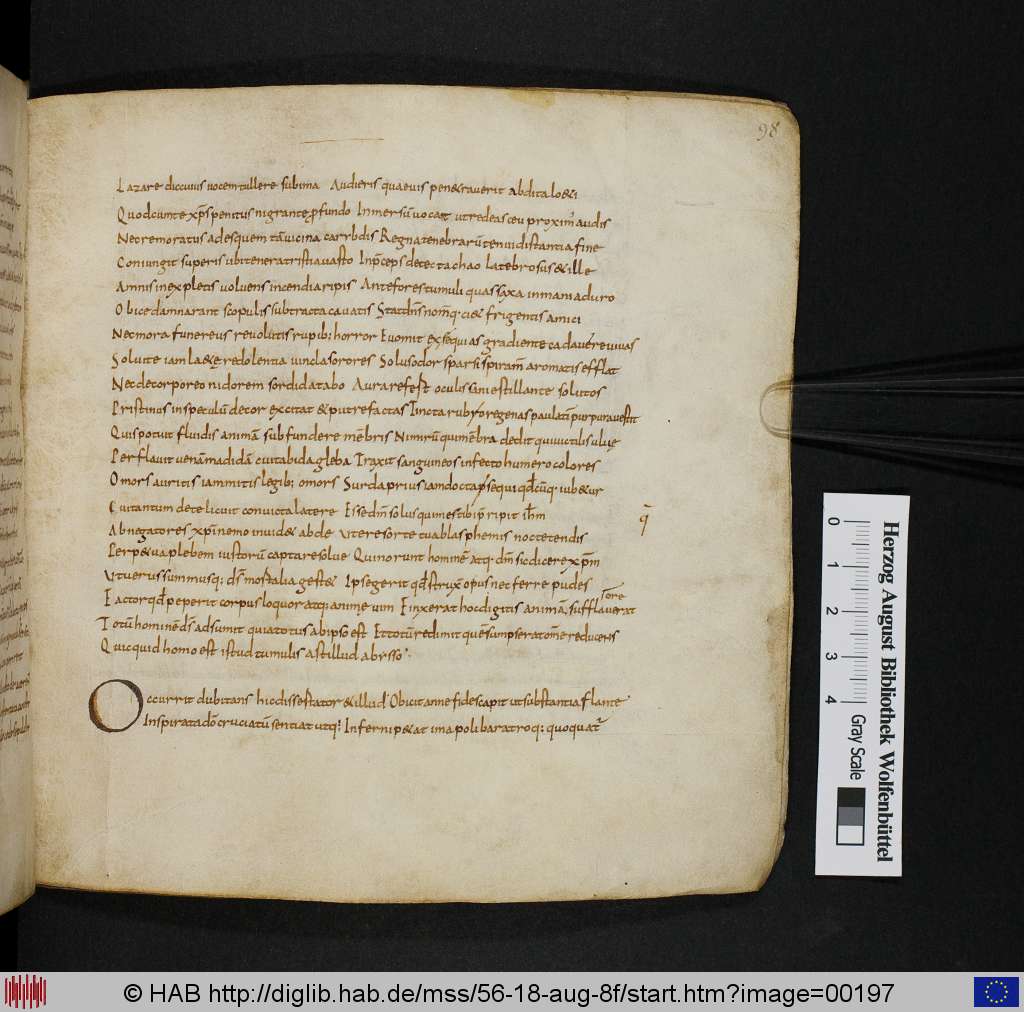 98
Lazare dic cuius uocem tullere sub ima Audieris quaeuis penetrauerit abdita loeti
Quod cum te xp̄s penitus nigrante ꝓfundo Inmersū uocat ut redeas ceu proxim' audis
Nec remoratus ades quem tā uicina carybdis Regna tenebrarū tenui distantia fine
Coniungit superis ubi tenera tristia uasto In p̄ceps detecta chao latebrosus & ille
Amnis inexpletis voluens incendia ripis Ante fores tumuli quas saxa inmani aduro
Obice damnarant scopulis subtracta cauatis Stat dn̄s nomq; ciet frigentis amici
Nec mora funereus reuolutis rupib; horror Euomit exsequias gradiente cadauere uiuas
Soluite iam laetę redolentia uincla sorores Solus odor sparsi spiram̄ aromatis efflat
Nec de corporeo nidorem sordida tabo Aura refest oculis sanie stillante solutos
Pristinus in speculū decor excitat & putrefactas Tincta rubore genas paulatī purpura uestit
Quis potuit fluidis animā subfundere mēbris Nimirū qui mēbra dedit qui uictilis uluę
Perflauit uenam madidā cui tabida gleba Traxit sanguineos infecto humero colores
O mors auritis iam mitis legib; o mors Surda prius iam docta sequi qd̄cūq· iubetur
Cui tantum de te licuit conuicta latere Esse dm̄ solus qui mesti p̄ripit ih̄m
q̄
Abnegatores xp̄i nemo inuidet abde Vteresorte tua blasphemis noctetendis
Perpetua plebem iustorū captare solue Qui norunt hominē atq· dm̄ sic dicere xp̄m
Vt uerus summusq; ds̄ mortalia gestet Ipse gerit qd̄ struxit opus nec ferre pudes
fore
Factor qd̄ peperit corpus loquor atq; animę uim Finxerat hoc digitis animā sufflauerat
Totū hominē ds̄ adsumit quia totus ab ipso est Et totū redimit quē sumpserat om̄e reducens
Quicquid homo est istud tumulis ast illud abysso·
Occurrit dubitans hic dissertator & illud Obicit anne fides capit ut substantia flante
Inspirata dō cruciatū sentiat utq; Inferni petat ima poli baratroq; quoquat̄
Herzog August Bibliothek Wolfenbüttel
0 1 2 3 4 Gray Scale
© HAB http://diglib.hab.de/mss/56-18-aug-8f/start.htm?image=00197